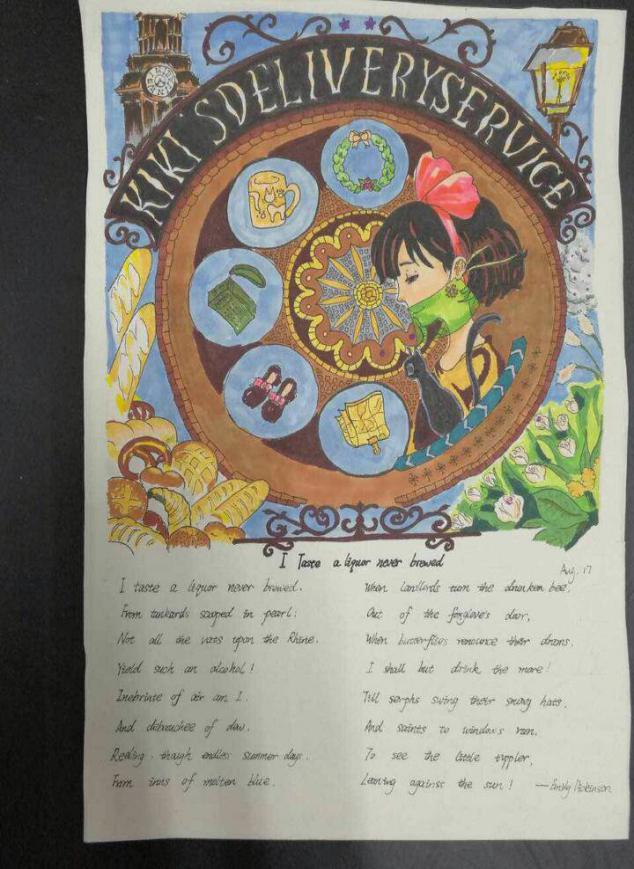 KIKI'SDELIVERYSERVICE
I Taste a liquor never brewed
Aug. 17
I taste a liquor never brewed.
From tankards scooped in pearl;
Not all the vats upon the Rhine.
Yield such an alcohol!
Inebriate of air am I.
And debauchee of dew.
Reeling. though endless summer days.
From inns of molten blue.
When landlords turn the drunken bee,
Out of the foxglove's door,
When butterflies renounce their drams.
I shall but drink the more!
Till serphs swing their snowy hats.
And saints to windows run,
To see the little tippler,
Leaning against the sun!
— Emily Dickinson